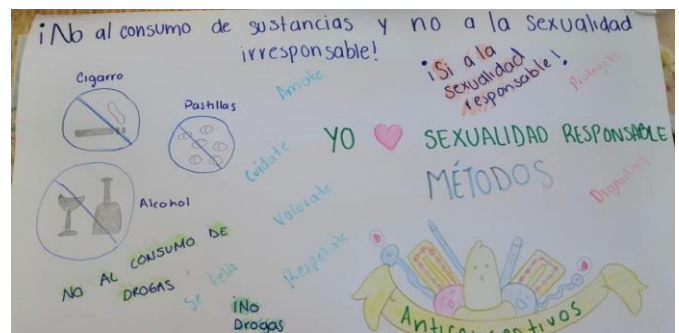 ¡No al consumo de sustancias y no a la sexualidad
irresponsable!
Cigarro
Pastillas
Alcohol
NO AL CONSUMO DE
DROGAS
¡No
Drogas
Amate
Cuidate
Valorate
Respetate
Se feliz
¡Si a la
sexualidad
responsable!
Protegete
YO SEXUALIDAD RESPONSABLE
MÉTODOS
Dignidad
Anticonceptivos